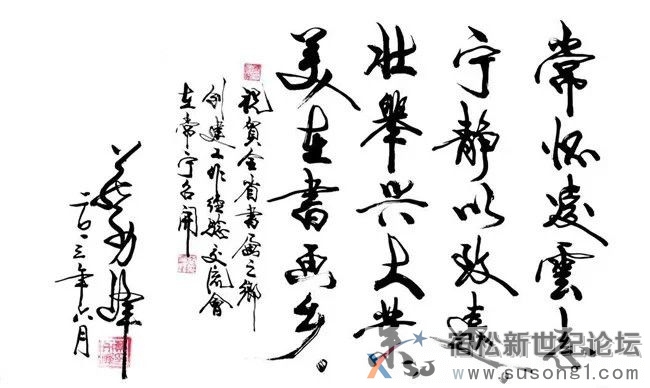 常怀凌雲志
宁静以致遠
壮舉兴大
美在書画乡
祝贺全省書画之鄉
创建工作经验交流會
在常宁召開
二〇一三年六月
宿松新世纪论坛
www.susong1.com